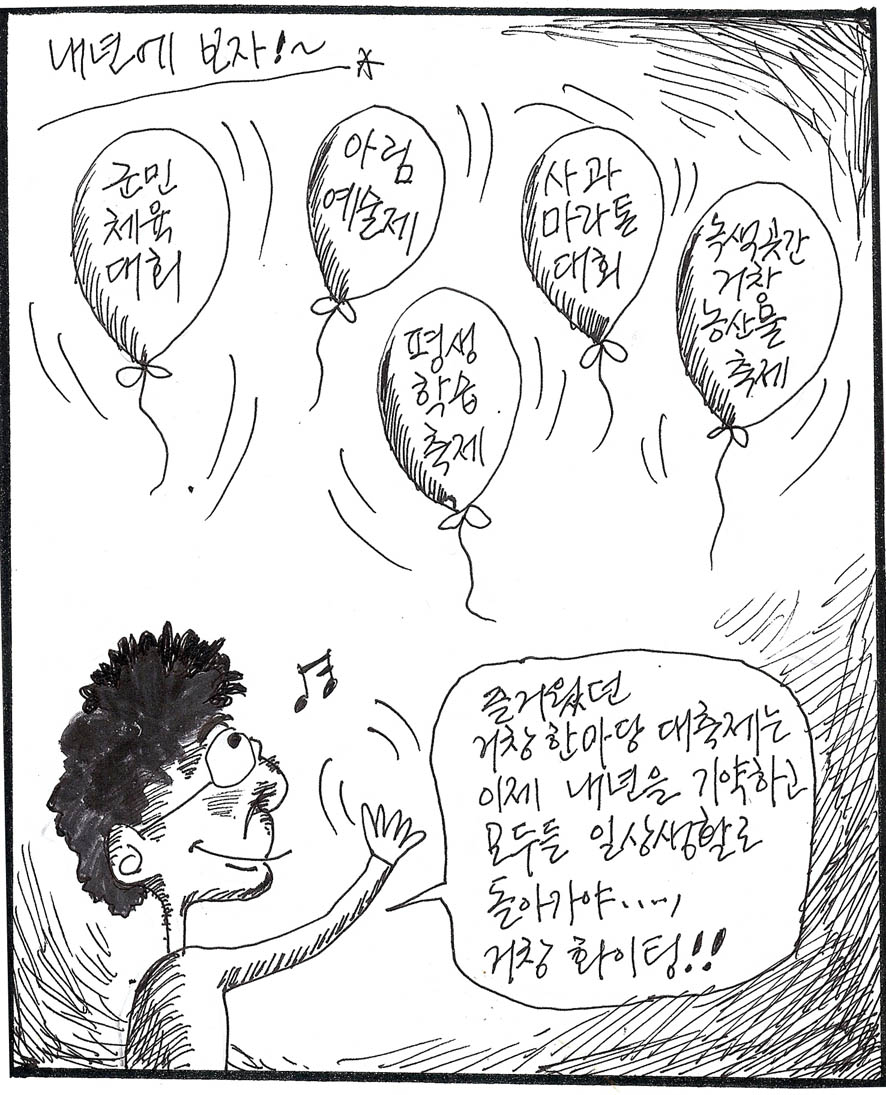 내년에 보자!~
군민
체육
대회
아림
예술제
사과
마라톤
대회
녹색곳간
거창
농산물
축제
평생
학습
축제
즐거웠던
거창한마당 대축제는
이제 내년을 기약하고
모두들 일상생활로
돌아가야.....,
거창 화이팅!!